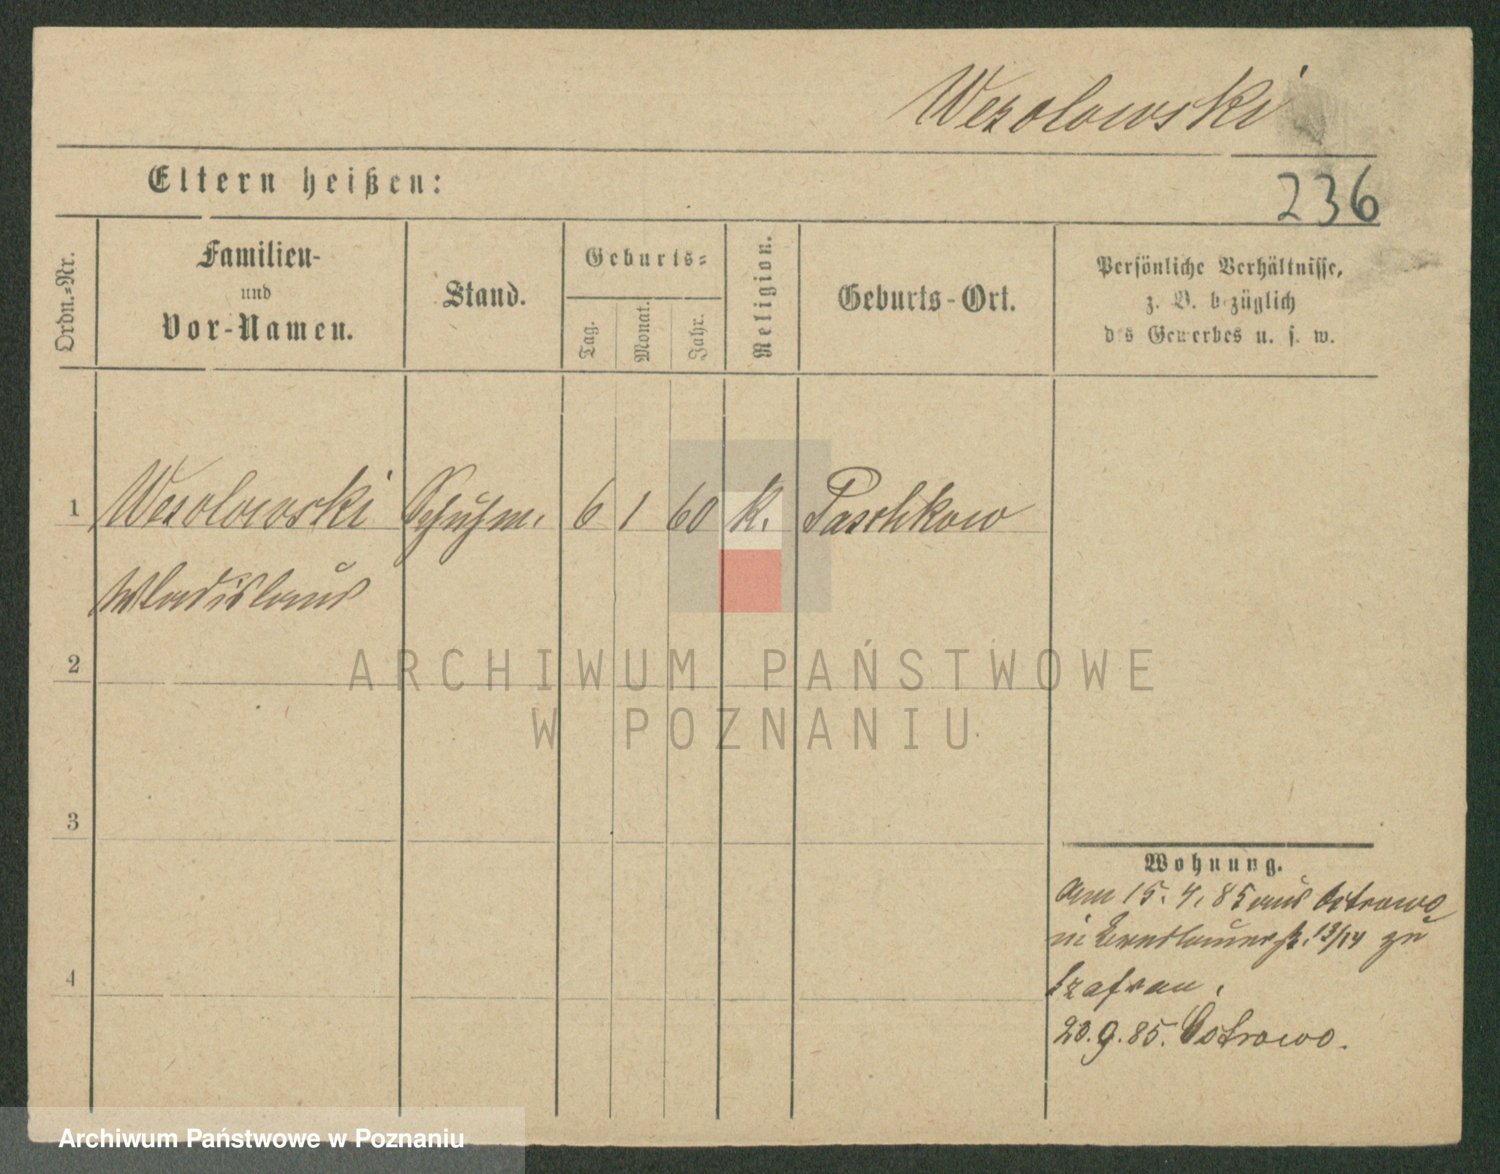 Wesolowski
Eltern heißen:
236
Ordn.-Nr.
Familien-
und
Vor-Namen.
Stand.
Geburts-
Tag.
Monat.
Jahr.
Religion.
Geburts-Ort.
Persönliche Verhältnisse,
z. B. bezüglich
des Gewerbes u. s. w.
1 Wesolowski Schuhm. 6 1 60 K. Paschkow
Wladislaus
2
3
4
Wohnung.
Am 15. 4. 85 aus Ostrowo
in 13/14 zu
Szafran.
20. 9. 85. Ostrowo.
ARCHIWUM PAŃSTWOWE
W POZNANIU
Archiwum Państwowe w Poznaniu